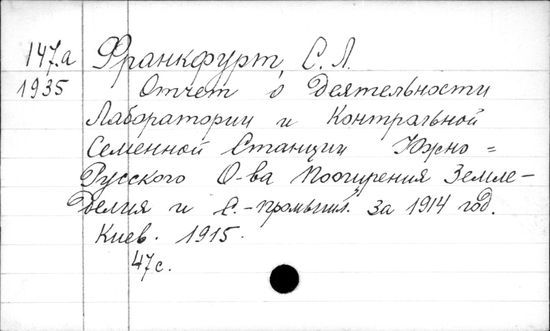 147.а Франкфурт, С. Л.
1935 Отчет о Деятельности
Лаборатории и Контрольной
Семенной Станции Южно=
Русского О-ва Поощрения Земле-
делия и с.-промышл. за 1914 год.
Киев. 1915.
47с.